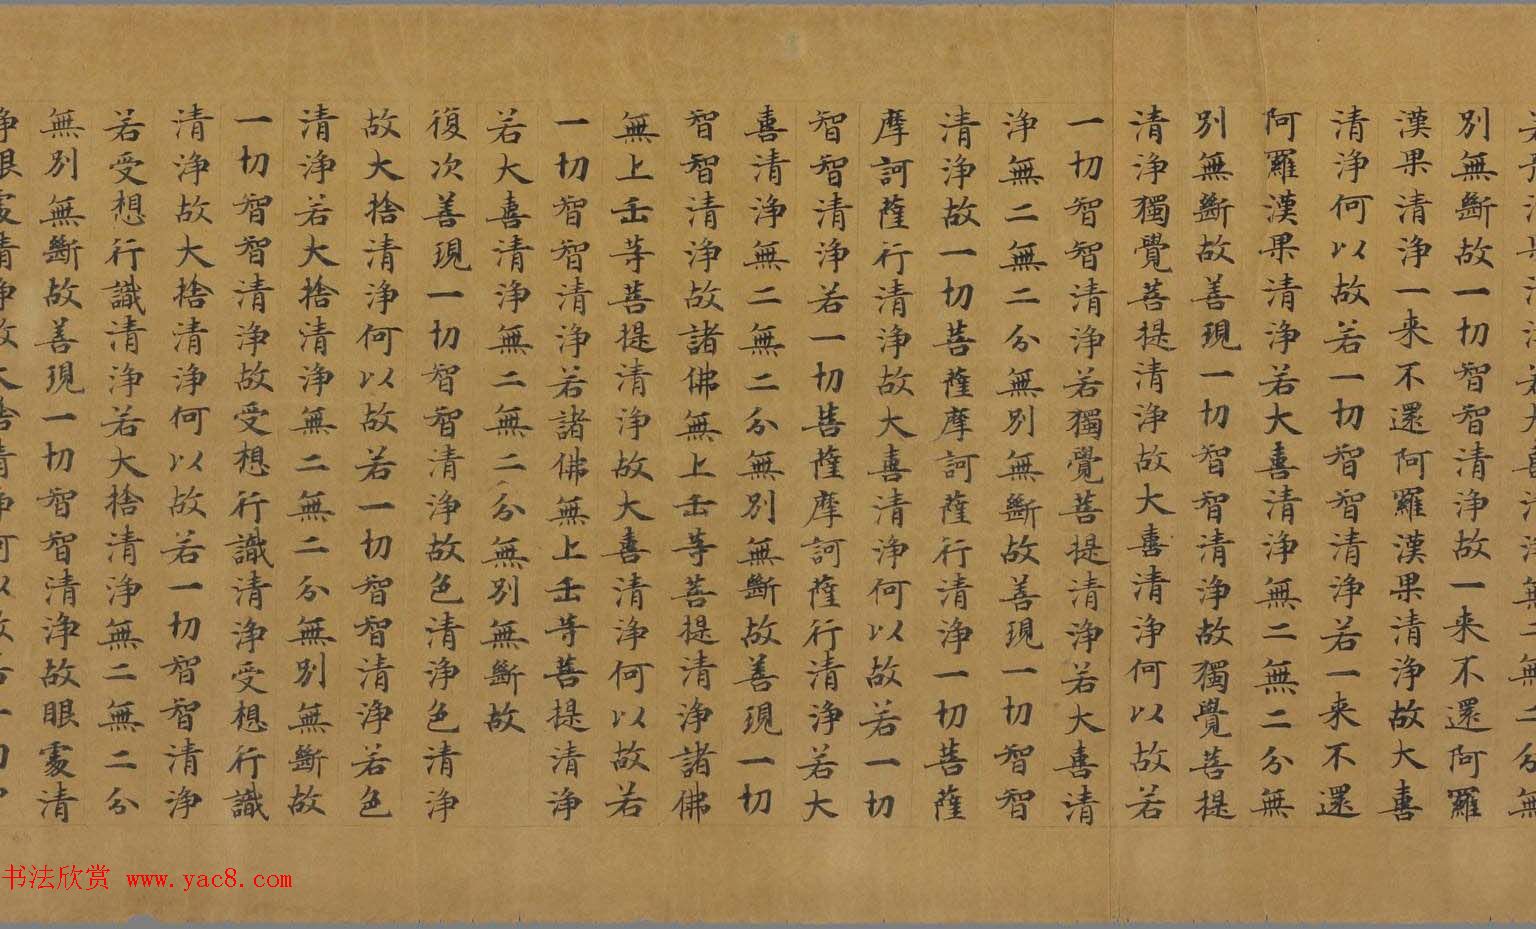 清淨若大喜清淨無二無二分無
別無斷故一切智智清淨故一来不還阿羅
漢果清淨一来不還阿羅漢果清淨故大喜
清淨何以故若一切智智清淨若一来不還
阿羅漢果清淨若大喜清淨無二無二分無
別無斷故善現一切智智清淨故獨覺菩提
清淨獨覺菩提清淨故大喜清淨何以故若
一切智智清淨若獨覺菩提清淨若大喜清
淨無二無二分無別無斷故善現一切智智
清淨故一切菩薩摩訶薩行清淨一切菩薩
摩訶薩行清淨故大喜清淨何以故若一切
智智清淨若一切菩薩摩訶薩行清淨若大
喜清淨無二無二分無別無斷故善現一切
智智清淨故諸佛無上正等菩提清淨諸佛
無上正等菩提清淨故大喜清淨何以故若
一切智智清淨若諸佛無上正等菩提清淨
若大喜清淨無二無二分無別無斷故
復次善現一切智智清淨故色清淨色清淨
故大捨清淨何以故若一切智智清淨若色
清淨若大捨清淨無二無二分無別無斷故
一切智智清淨故受想行識清淨受想行識
清淨故大捨清淨何以故若一切智智清淨
若受想行識清淨若大捨清淨無二無二分
無別無斷故善現一切智智清淨故眼處清
淨眼處清淨故大捨清淨何以故若一切
书法欣赏 www.yac8.com